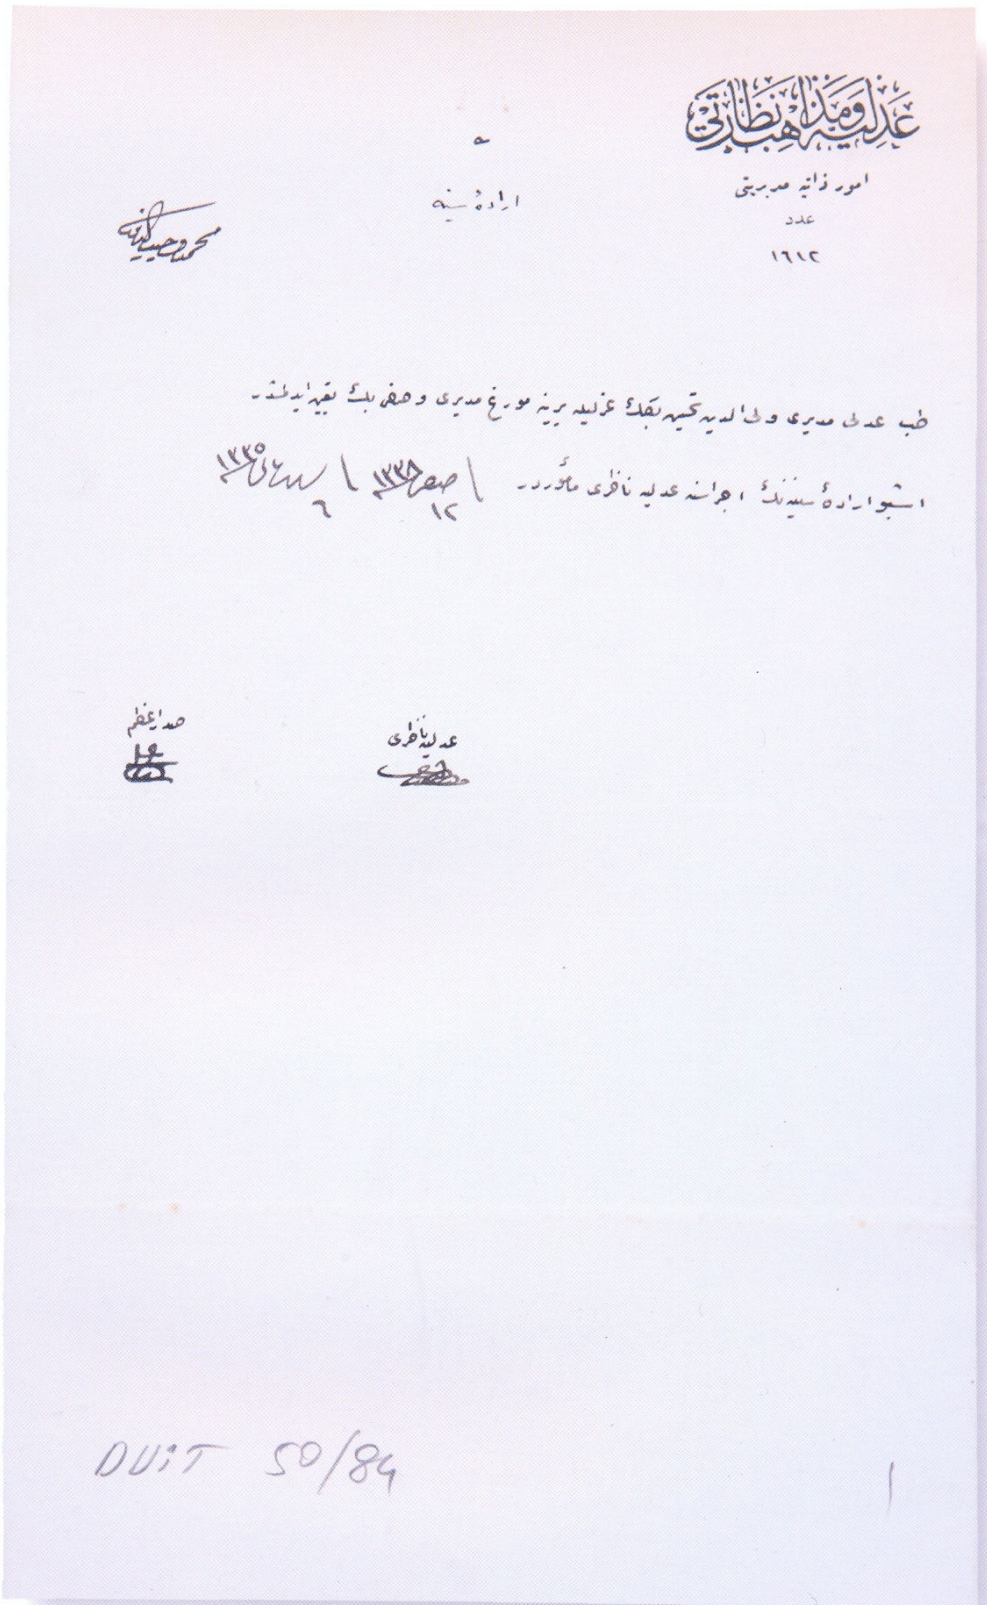 عدليه ومذاهب نظارتى
امور ذاتيه مديريتى
عدد
١٦١٢
ه
ارادهٔ سنيه
محمد وحيد الدين
طب عدلى مديرى ولى الدين تحسين بكك عزليله يرينه مورغ مديرى وصفى بك تعيين ايدلمشدر
اشبو ارادهٔ سنيه نك اجراسنه عدليه ناظرى مأموردر
١٢ صفر ١٣٣٨
٦ ١٣٣٥
عدليه ناظرى
صدراعظم
DUiT 50/84
١